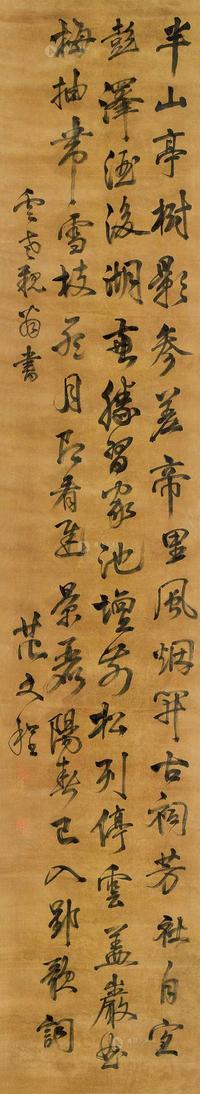 半山亭樹影參差帝里風烟開古祠芳社自宜
彭澤酒後湖重勝習家池壇前松列停雲蓋巖畔
梅抽帶雪枝 月即看 景麗陽春已入郢歌詞
雲老親翁書
范文程